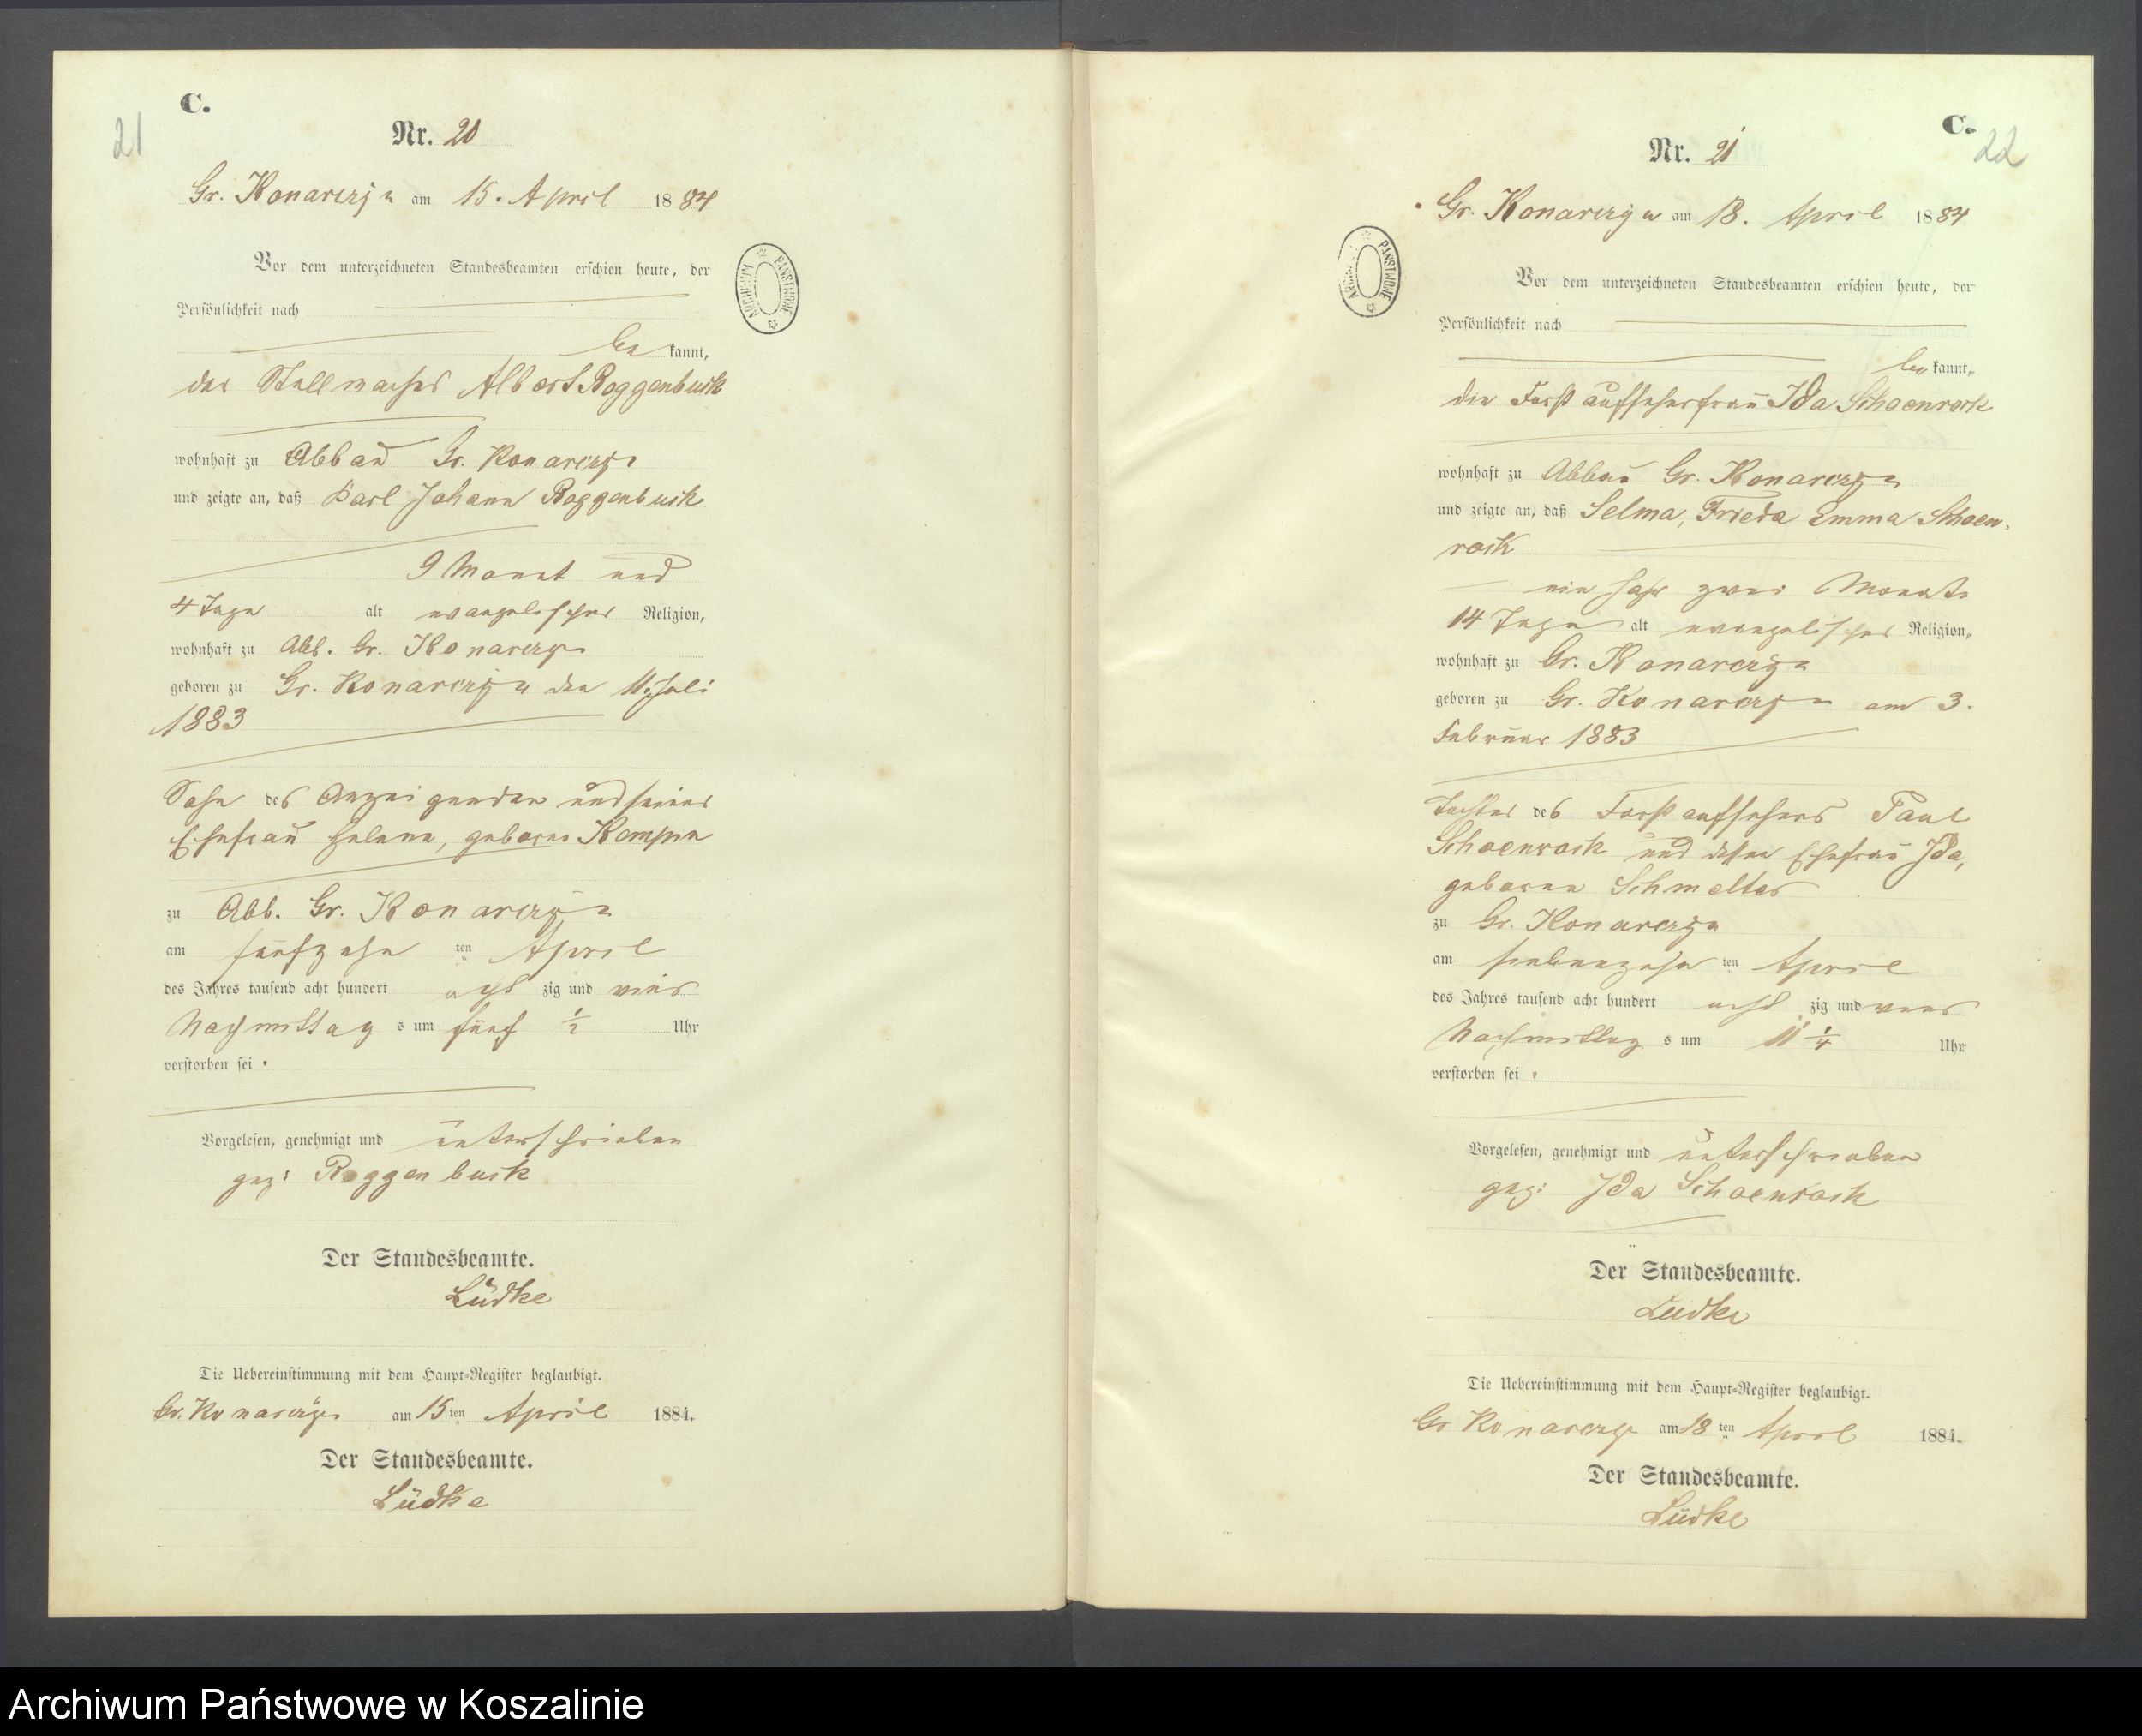 C.
21
Nr. 20
Gr. Konarczyn am 15. April 1884
Vor dem unterzeichneten Standesbeamten erschien heute, der
Persönlichkeit nach
be kannt,
der Stellmacher Albert Roggenbuck
wohnhaft zu Abbau Gr. Konarczyn
und zeigte an, daß Karl Johann Roggenbuck
9 Monat und
4 Tage alt evangelischer Religion,
wohnhaft zu Abb. Gr. Konarczyn
geboren zu Gr. Konarczyn den 11. Juli
1883
Sohn des Anzeigenden und seiner
Ehefrau Helene, geborene
zu Abb. Gr. Konarczyn
am fünfzehn ten April
des Jahres tausend acht hundert acht zig und vier
Nachmittag s um fünf ½ Uhr
verstorben sei.
Vorgelesen, genehmigt und unterschrieben
gez: Roggenbuck
Der Standesbeamte.
Lüdke
Die Uebereinstimmung mit dem Haupt-Register beglaubigt.
Gr. Konarczyn am 15 ten April 1884.
Der Standesbeamte.
Lüdke
ARCHIWUM PAŃSTWOWE
C.
22
Nr. 21
Gr. Konarczyn am 18. April 1884
Vor dem unterzeichneten Standesbeamten erschien heute, der
Persönlichkeit nach
be kannt,
die Forstaufseherfrau Ida Schoenrock
wohnhaft zu Abbau Gr. Konarczyn
und zeigte an, daß Selma, Frieda Emma Schoen-
rock
ein Jahr zwei Monate
14 Tage alt evangelischer Religion,
wohnhaft zu Gr. Konarczyn
geboren zu Gr. Konarczyn am 3.
Februar 1883
Tochter des Forstaufsehers Paul
Schoenrock und dessen Ehefrau Ida,
geborene Schmelter
zu Gr. Konarczyn
am siebenzehn ten April
des Jahres tausend acht hundert acht zig und vier
Nachmittag s um 11 ¼ Uhr
verstorben sei.
Vorgelesen, genehmigt und unterschrieben
gez: Ida Schoenrock
Der Standesbeamte.
Lüdke
Die Uebereinstimmung mit dem Haupt-Register beglaubigt.
Gr Konarczyn am 18 ten April 1884.
Der Standesbeamte.
Lüdke
ARCHIWUM PAŃSTWOWE
Archiwum Państwowe w Koszalinie